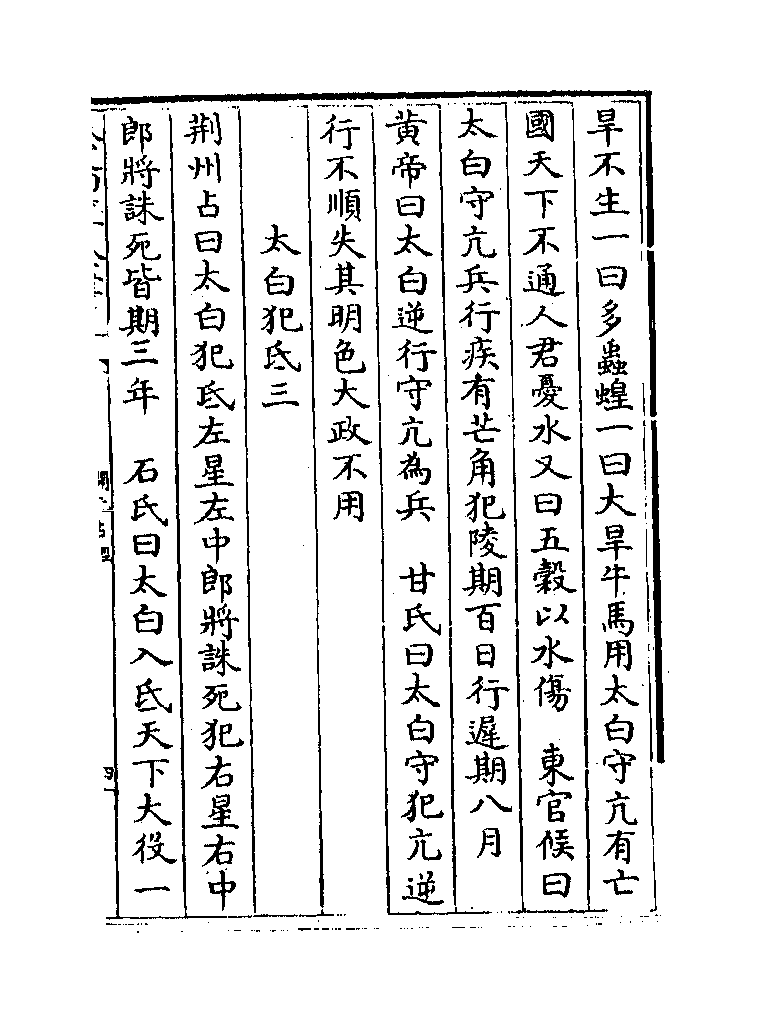 旱不生一曰多蟲蝗一曰大旱牛馬用太白守亢有亡
國天下不通人君憂水又曰五穀以水傷　東官候曰
太白守亢兵行疾有芒角犯陵期百日行遲期八月
黃帝曰太白逆行守亢為兵　甘氏曰太白守犯亢逆
行不順失其明色大政不用
太白犯氐三
荆州占曰太白犯氐左星左中郎將誅死犯右星右中
郎將誅死皆期三年　石氏曰太白入氐天下大役一